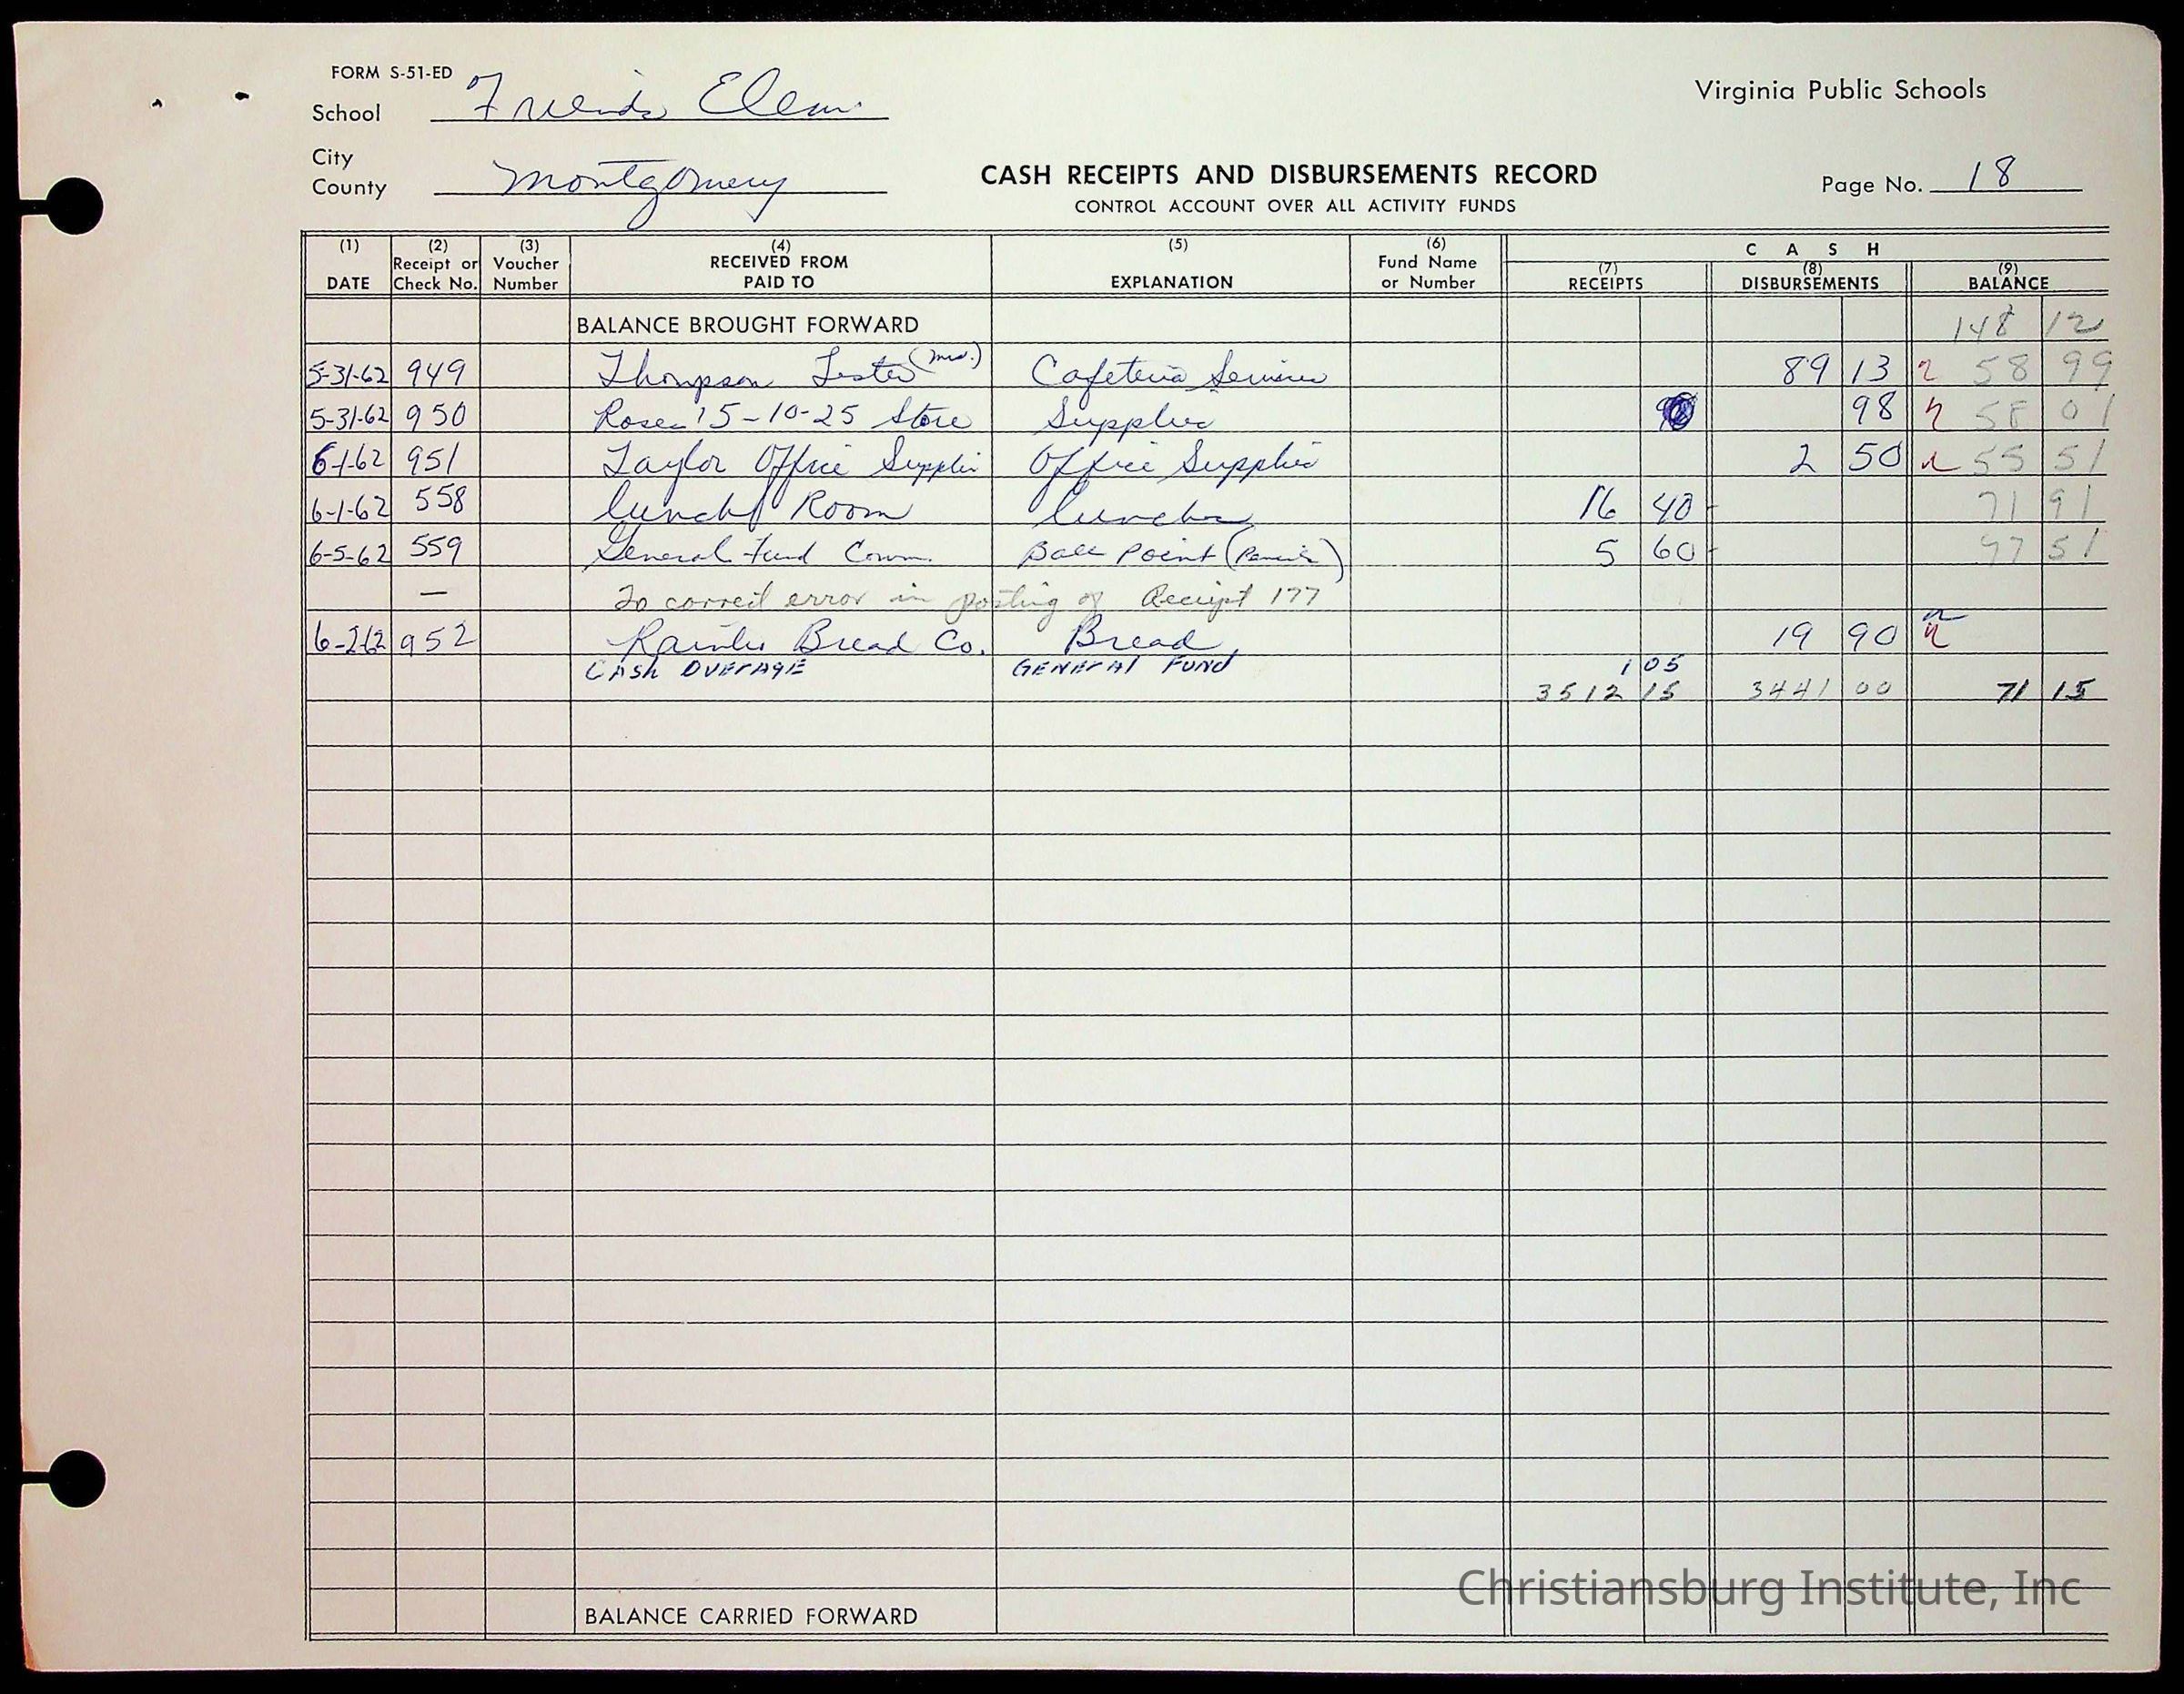 FORM S-51-ED
Virginia Public Schools
School Friends Elem.
City
County Montgomery
CASH RECEIPTS AND DISBURSEMENTS RECORD
CONTROL ACCOUNT OVER ALL ACTIVITY FUNDS
Page No. 18
(1) DATE (2) Receipt or Check No. (3) Voucher Number (4) RECEIVED FROM PAID TO (5) EXPLANATION (6) Fund Name or Number CASH (7) RECEIPTS (8) DISBURSEMENTS (9) BALANCE
BALANCE BROUGHT FORWARD 148 12
5-31-62 949 Thompson Lester (Mrs.) Cafeteria Services 89 13 58 99
5-31-62 950 Roses 5-10-25 Store Supplies 98 58 01
6-1-62 951 Taylor Office Supplies Office Supplies 2 50 55 51
6-1-62 558 Lunch Room Lunches 16 40 71 91
6-5-62 559 General Fund Comm. Ball Point (Pencils) 5 60 77 51
— To correct error in posting of Receipt 177
6-2-62 952 Bread Co. Bread 19 90
CASH OVERAGE GENERAL FUND 1 05
3512 15 3441 00 71 15
BALANCE CARRIED FORWARD
Christiansburg Institute, Inc